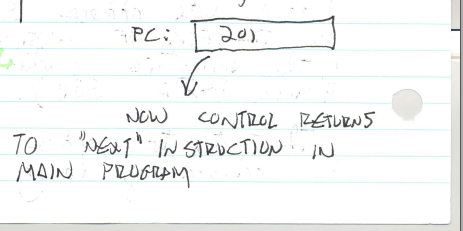 PC: 201
NOW CONTROL RETURNS
TO "NEXT" INSTRUCTION IN
MAIN PROGRAM